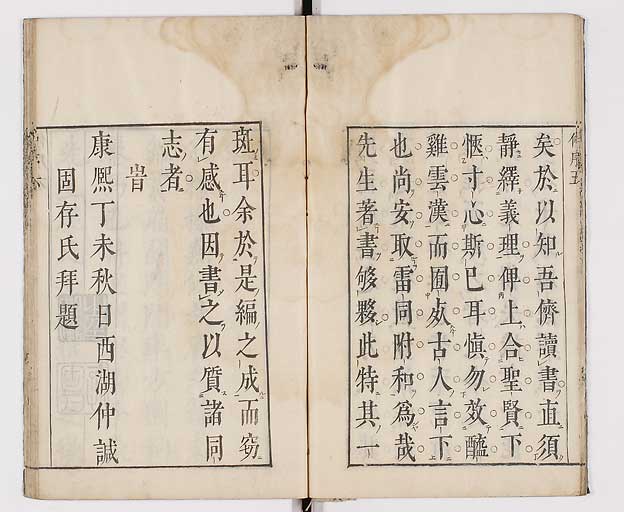 矣於以知吾儕讀書直須
靜繹義理俾上合聖賢下
愜寸心斯已耳愼勿效醯
雞雲漢而囿於古人言下
也尚安取雷同附和爲哉
先生著書够夥此特其一
斑耳余於是編之成而窃
有感也因書之以質諸同
志者
旹
康熙丁未秋日西湖仲誠
固存氏拜題